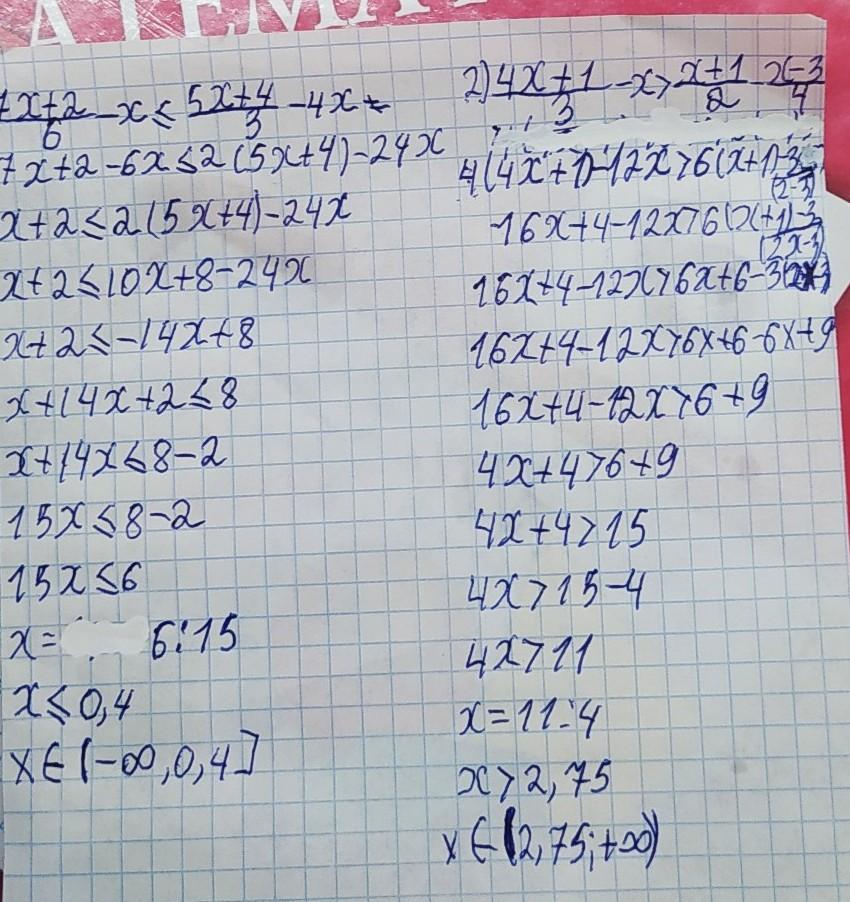 АТЕМАТ
7x+2/6 - x ≤ 5x+4/3 - 4x
7x+2-6x≤2(5x+4)-24x
x+2≤2(5x+4)-24x
x+2≤10x+8-24x
x+2≤-14x+8
x+14x+2≤8
x+14x≤8-2
15x≤8-2
15x≤6
x= 6:15
x≤0,4
x∈[-∞,0,4]
2) 4x+1/3 - x > x+1/2 - x-3/4
4(4x+1)-12x>6(x+1)-3
(2-3)
16x+4-12x>6(x+1)-3
(2x-3)
16x+4-12x>6x+6-3(2x-3)
16x+4-12x>6x+6-6x+9
16x+4-12x>6+9
4x+4>6+9
4x+4>15
4x>15-4
4x>11
x=11:4
x>2,75
x∈(2,75;+∞)